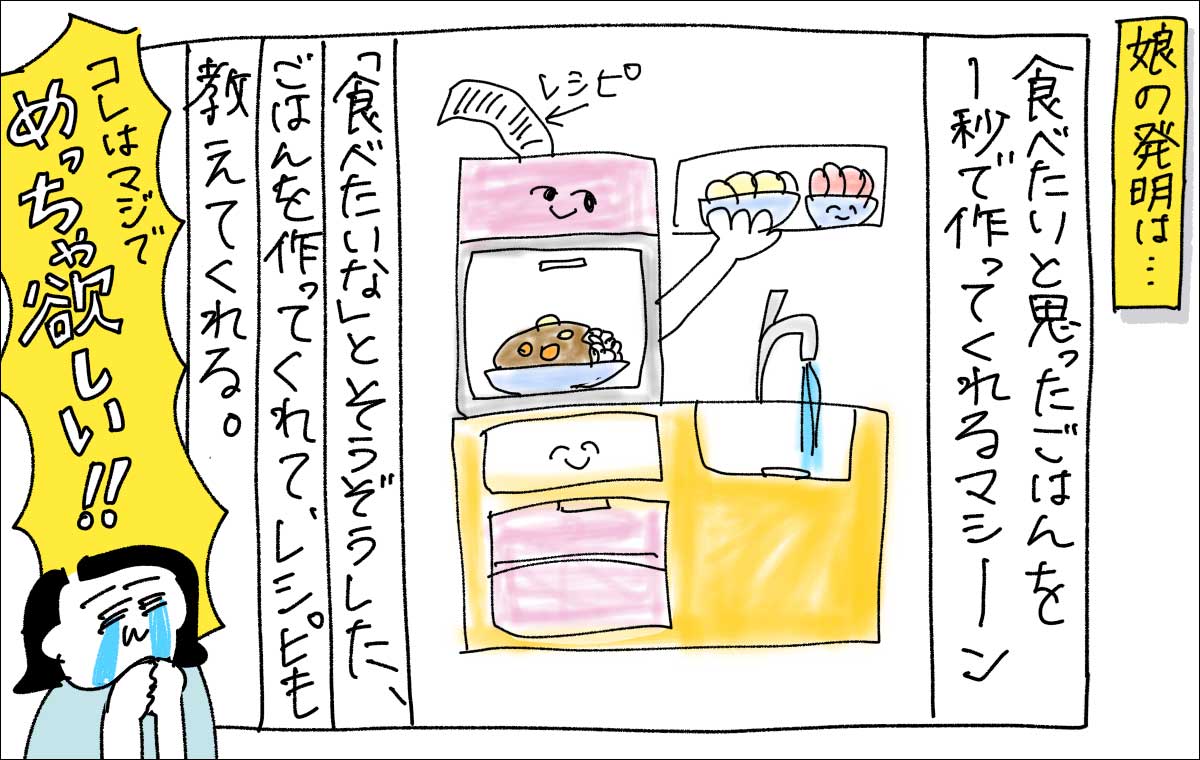 娘の発明は…
食べたいと思ったごはんを
1秒で作ってくれるマシーン
レシピ
「食べたいな」とそうぞうした、
ごはんを作ってくれて、レシピも
教えてくれる。
コレはマジで
めっちゃ欲しい!!